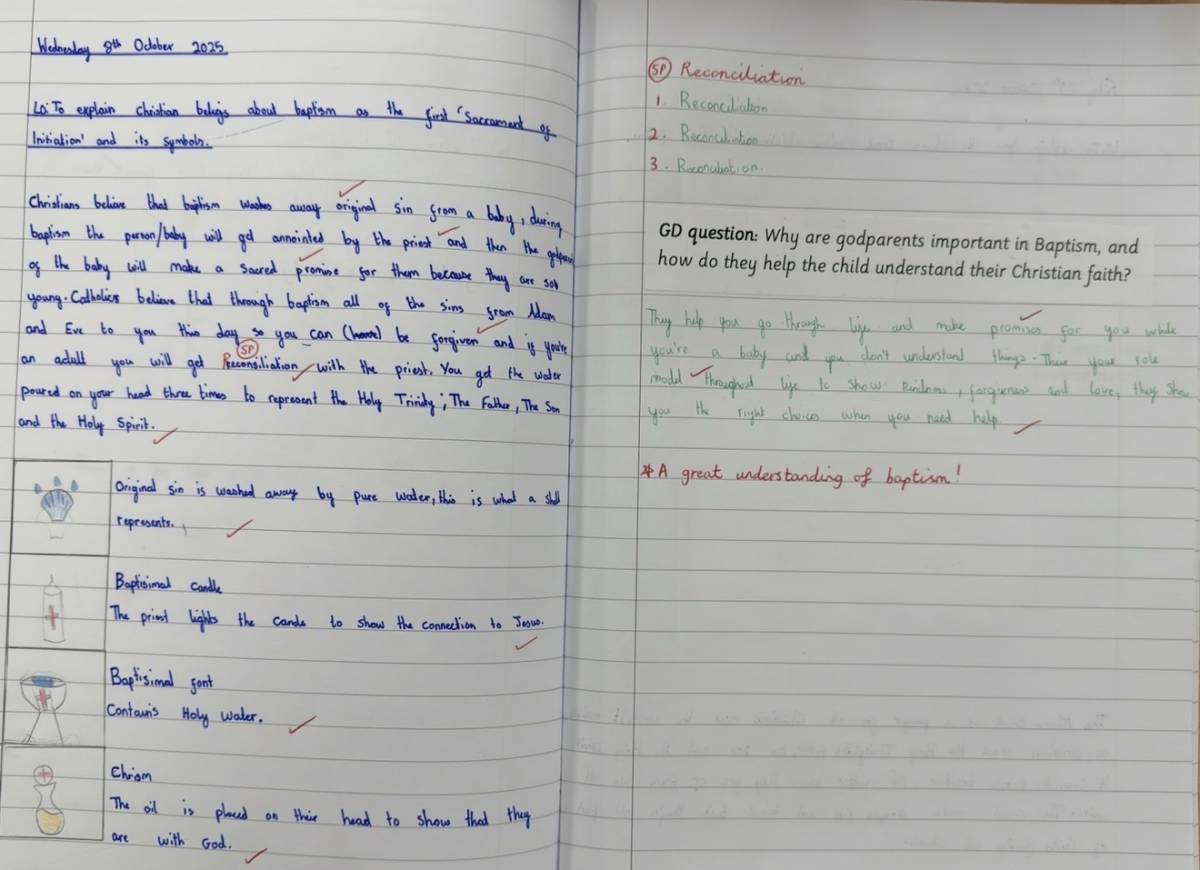 Wednesday 8th October 2025
LO: To explain Christian beliefs about baptism as the first 'Sacrament of
Initiation' and its symbols.
Christians believe that baptism washes away original sin from a baby, during
baptism the person/baby will get annointed by the priest and then the
of the baby will make a sacred promise for them because they are soo
young. Catholics believe that through baptism all of the sins from Adam
and Eve to you this day so you can be forgiven and if you're
SP
an adult you will get Reconsiliation with the priest. You get the water
poured on your head three times to represent the Holy Trinity; The Father, The Son
and the Holy Spirit.
Original sin is washed away by pure water, this is what a shell
represents.
Baptisimal candle
The priest lights the cande to show the connection to Jesus.
Baptisimal font
Contains Holy Water.
Chrism
The oil is placed on their head to show that they
are with God.
SP Reconciliation
1. Reconciliation
2. Reconciliation
3. Reconciliation.
GD question: Why are godparents important in Baptism, and
how do they help the child understand their Christian faith?
They help you go through life and make promises for you while
you're a baby and you don't understand things. Their your role
model throughout life to show kindness, forgiveness and love, they show
you the right choices when you need help
* A great understanding of baptism!